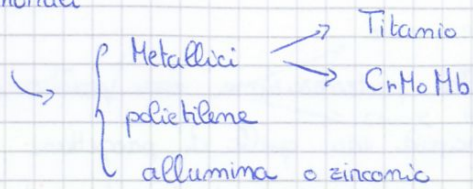 Metallici
Titanio
CrMoMb
polietilene
allumina o zirconia